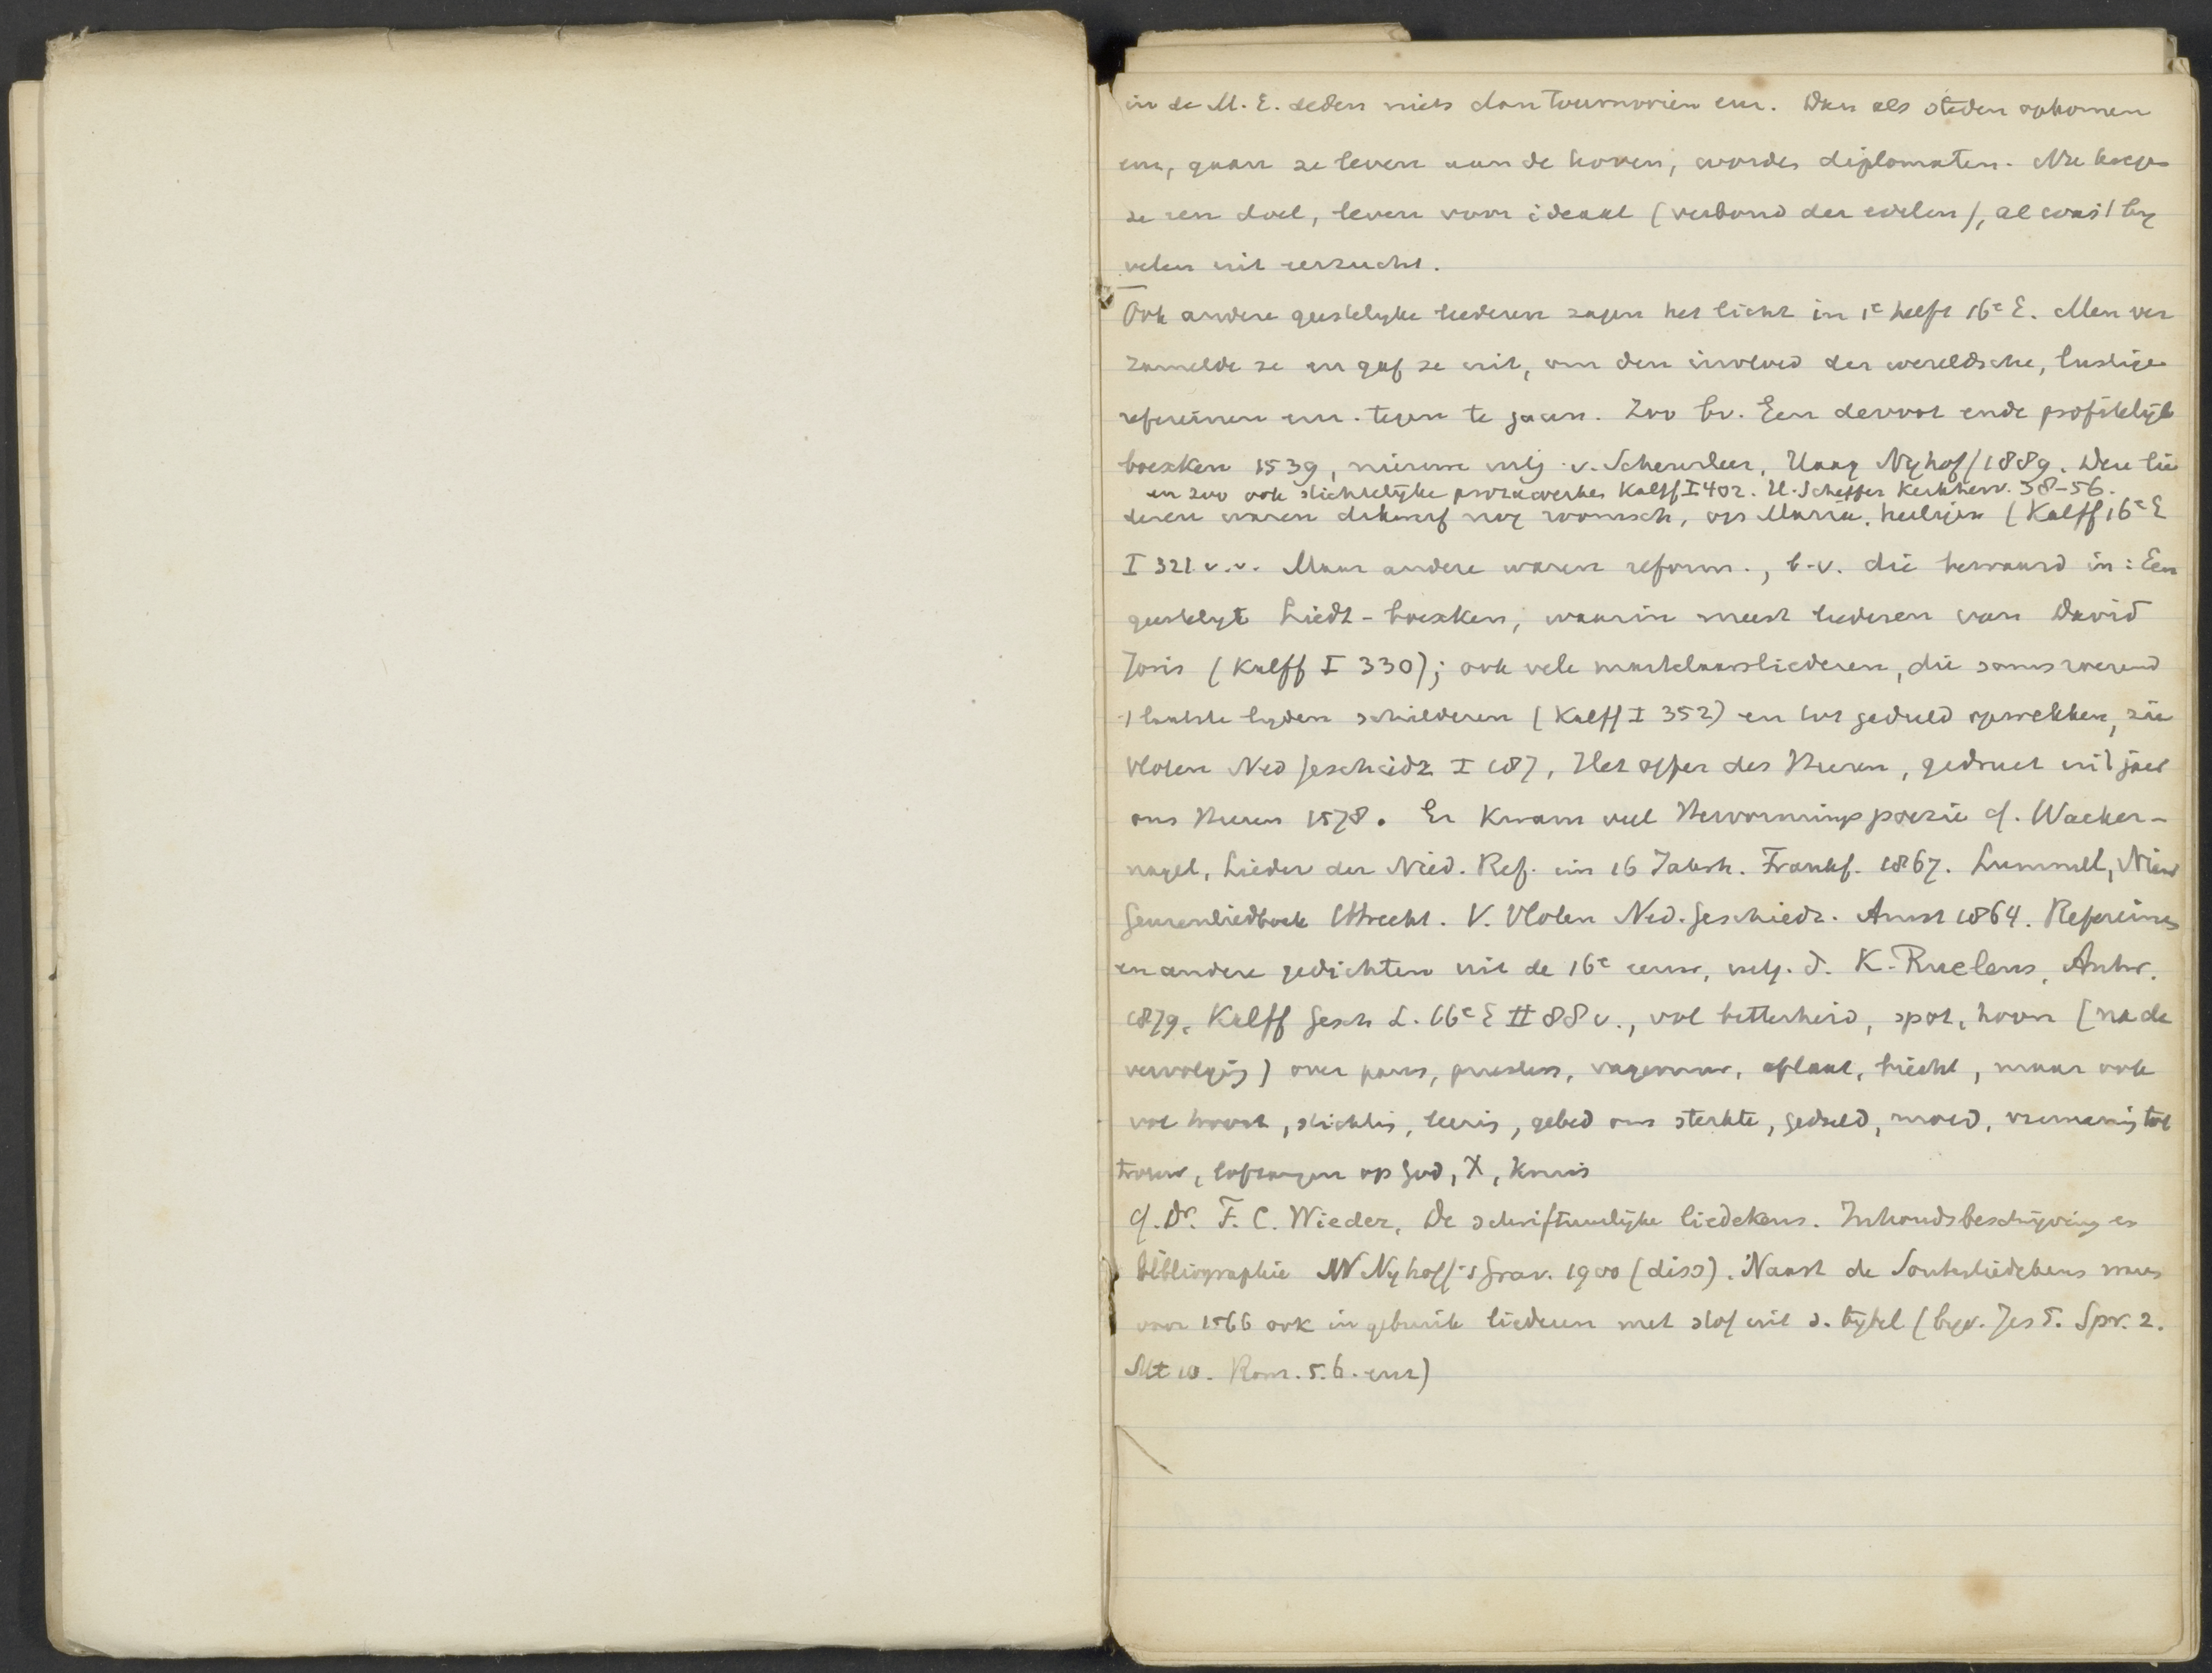 in de M. E. deden niets dan tournooien enz. Dan als steden opkomen
enz, gaan ze leven aan de hoven, worden diplomaten. Nu kregen
ze een doel, leven voor ideaal (verbond der edelen), al was 't by
velen uit eerzucht.
Ook andere geestelyke liederen zagen het licht in 1e helft 16e E. Men ver
zamelde ze en gaf ze uit, om den invloed der wereldsche, lustige
refereinen enz. tegen te gaan. Zoo bv. Een devoot ende profitelyk
boexken 1539, nieuwe uitg. v. Scheurleer, Haag Nyhof 1889. Deze lie
en zoo ook stichtelijke prozawerken Kalff I 402. H. Scheffer Kerkherv. 38-56.
deren waren dikwerf nog roomsch, op Maria, heiligen (Kalff 16e E
I 321 v.v. Maar andere waren reform., b.v. die bewaard in: Een
geestelyk Liedt-boexken, waarin meest liederen van David
Joris (Kalff I 330); ook vele martelaarsliederen, die soms roerend
't laatste lyden schilderen (Kalff I 352) en tot geduld opwekken, zie
Vloten Ned geschiedz I 187, Het offer des Heeren, gedruct int jaer
ons Heren 1578. Er kwam veel Hervormingspoezie cf. Wacker-
nagel, Lieder der Nied. Ref. im 16 Jahrh. Frankf. 1867. Lummel, Nieuw
Geuzenliedboek Utrecht. V. Vloten Ned. geschiedz. Amst 1864. Refereinen
en andere gedichten uit de 16e eeuw, uitg. d. K. Ruelens, Antw.
1879. Kalff Gesch L. 16e E II 88 v., vol bitterheid, spot, hoon (na de
vervolging) over paus, priesters, vagevuur, aflaat, biecht, maar ook
vol troost, stichting, leering, gebed om sterkte, geduld, moed, vermaning tot
trouw, lofzangen op God, X, kruis
cf. Dr. F. C. Wieder, De schriftuurlijke liedekens. Inhoudsbeschrijving en
bibliographie M Nyhoff 's Grav. 1900 (diss). Naast de Souterliedekens waren
voor 1566 ook in gebruik liederen met stof uit d. bybel (byv. Jes 5. Spr. 2.
Mt 10. Rom. 5. 6. enz)